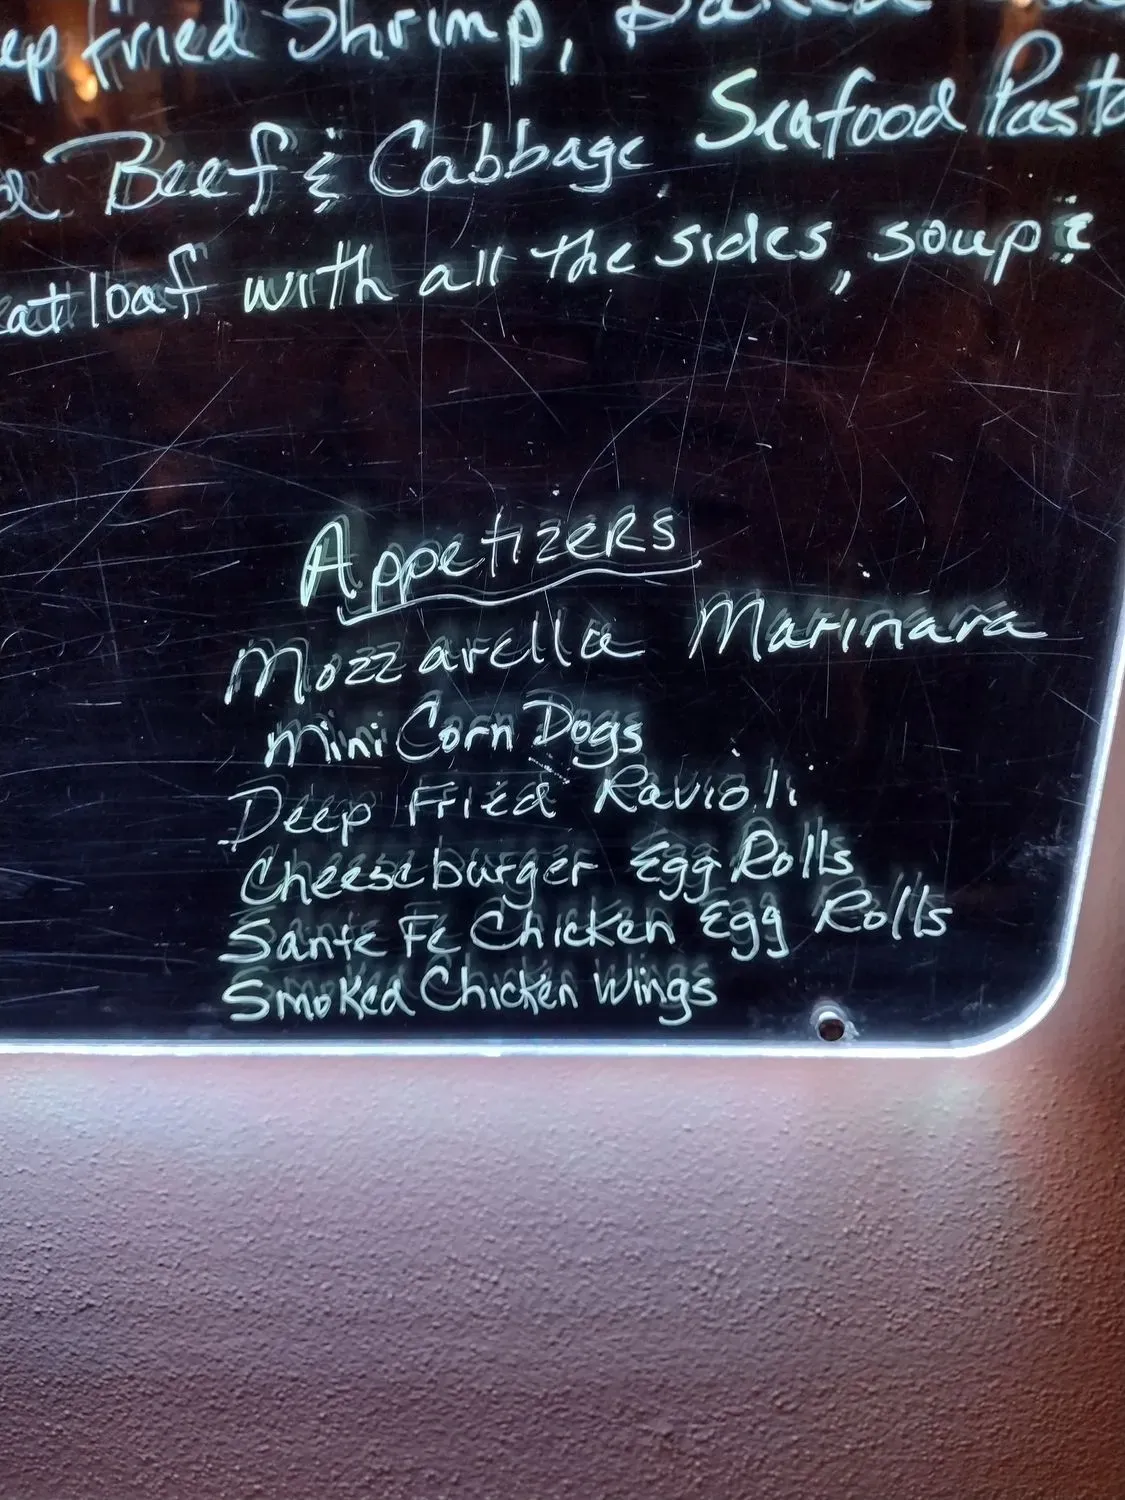 Fried Shrimp,
Beef & Cabbage, Seafood Pasta
with all the sides, soup &
Appetizers
Mozzarella Marinara
Mini Corn Dogs
Deep Fried Ravioli
Cheeseburger Egg Rolls
Sante Fe Chicken Egg Rolls
Smoked Chicken Wings